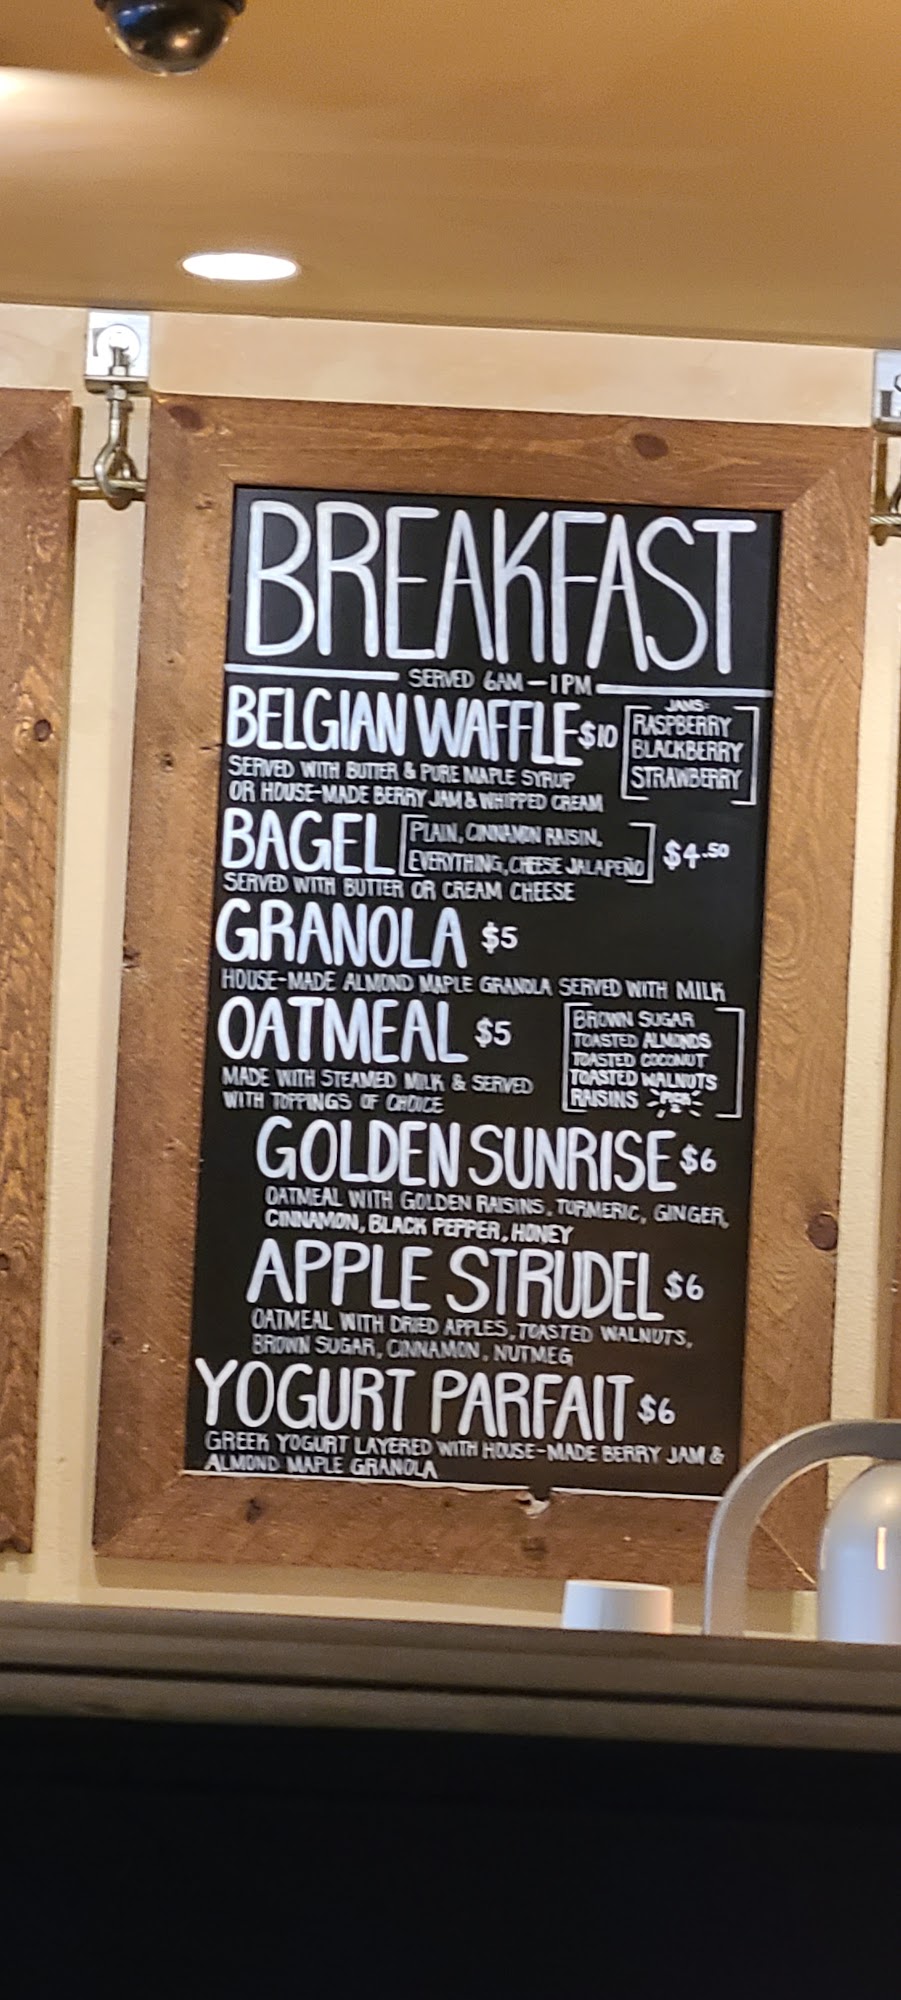 BREAKFAST
SERVED 6AM - 1PM
BELGIAN WAFFLE $10
SERVED WITH BUTTER & PURE MAPLE SYRUP
OR HOUSE-MADE BERRY JAM & WHIPPED CREAM
JAMS:
RASPBERRY
BLACKBERRY
STRAWBERRY
BAGEL
PLAIN, CINNAMON RAISIN,
EVERYTHING, CHEESE JALAPEÑO
$4.50
SERVED WITH BUTTER OR CREAM CHEESE
GRANOLA $5
HOUSE-MADE ALMOND MAPLE GRANOLA SERVED WITH MILK
OATMEAL $5
MADE WITH STEAMED MILK & SERVED
WITH TOPPINGS OF CHOICE
BROWN SUGAR
TOASTED ALMONDS
TOASTED COCONUT
TOASTED WALNUTS
RAISINS
PICK
2
GOLDEN SUNRISE $6
OATMEAL WITH GOLDEN RAISINS, TURMERIC, GINGER,
CINNAMON, BLACK PEPPER, HONEY
APPLE STRUDEL $6
OATMEAL WITH DRIED APPLES, TOASTED WALNUTS,
BROWN SUGAR, CINNAMON, NUTMEG
YOGURT PARFAIT $6
GREEK YOGURT LAYERED WITH HOUSE-MADE BERRY JAM &
ALMOND MAPLE GRANOLA